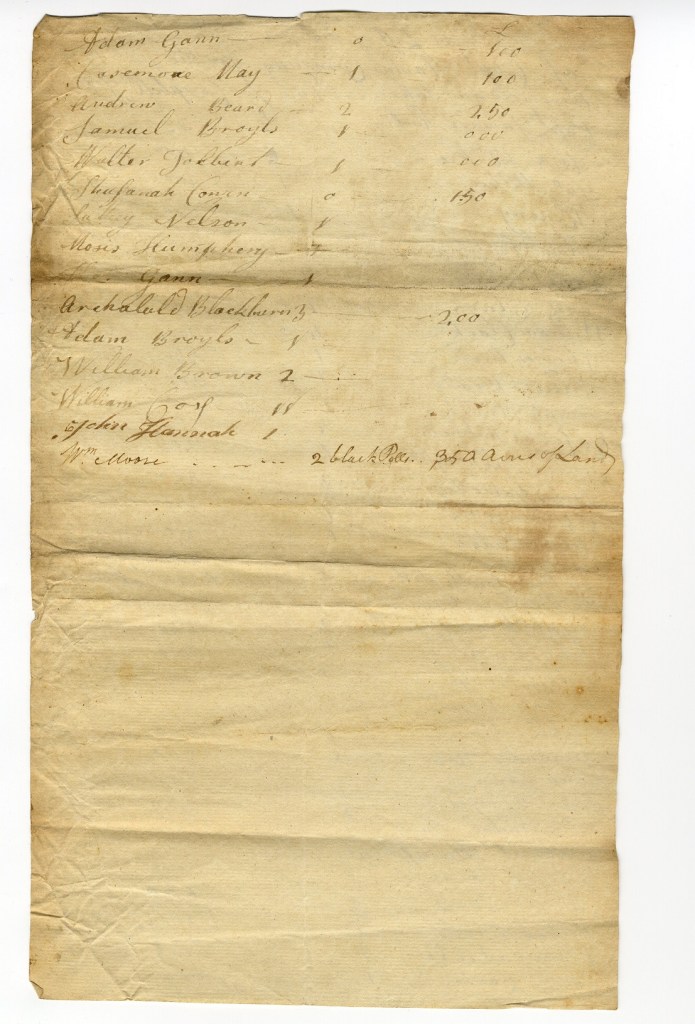 Adam Gann — 0 100
May — 1 100
Andrew Beard - 2 250
Samuel Broyls 1 000
Walter 1 000
Shusanah 0 150
Nelson - 1
Moses Humphery -
Gann — 1
Archabald Blackburn 3 — 200
Adam Broyls - 1
William Brown 2 —
William Coy 11
John Hannah 1
Wm Moore . - - - . . . 2 black Polls . . 350 Acres of Land